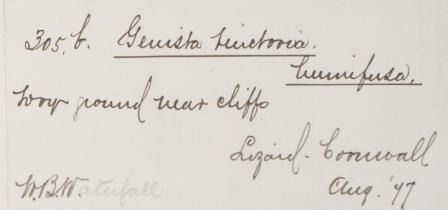 305. b. Genista tinctoria.
humifusa.
ground near cliffs
Lizard. Cornwall
W.B.Waterfall
Aug. '77